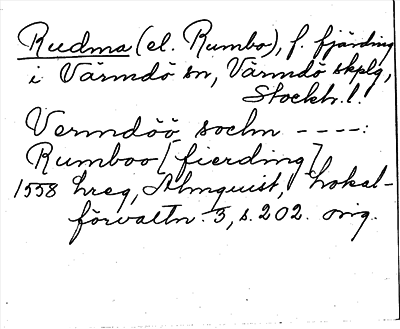 Rudma (el. Rumbo), f. fjärding
i Värmdö sn, Värmdö skplg,
Stockh. l.
Vermdöö sochn ----:
Rumboo [fierding]
1558 hreg, Almquist, Lokal-
förvaltn. 3, s. 202. orig.